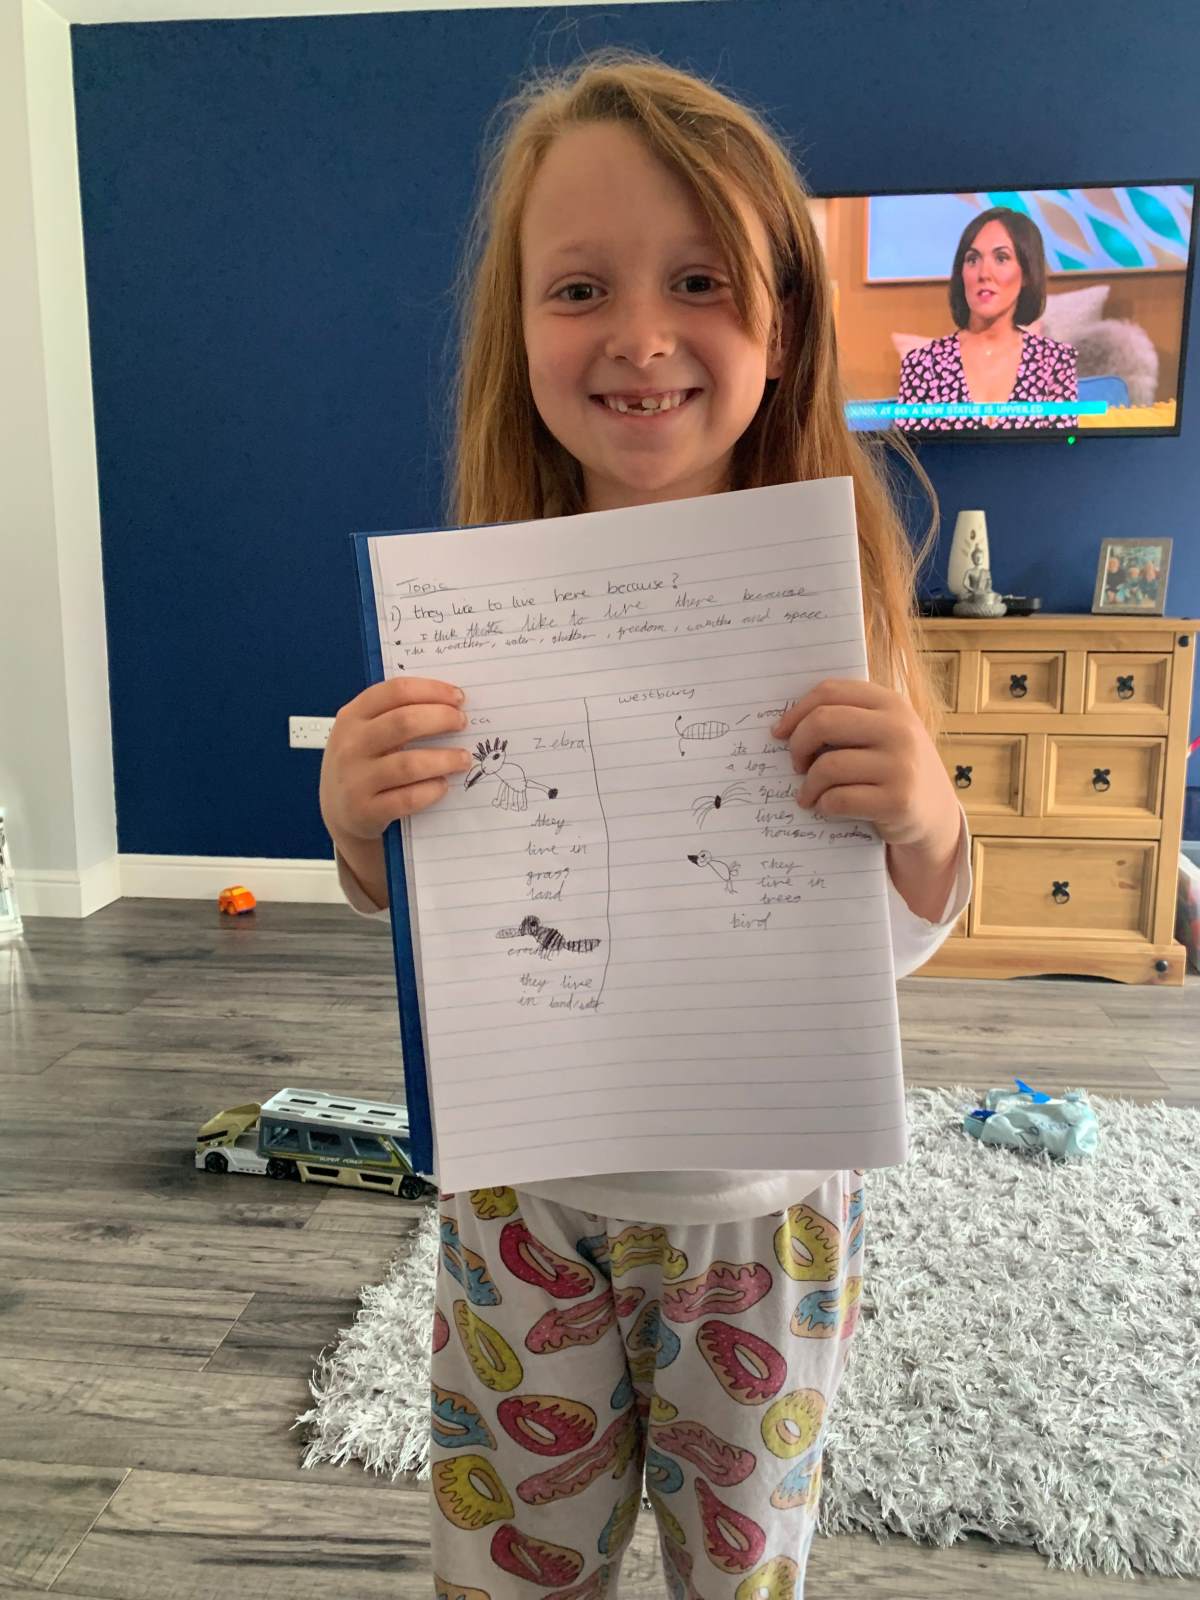 Topic
1) they like to live here because?
• I think like to live there because
the weather, water, shelter, freedom, and space.
•
ca
Zebra
they
live in
grass
land
they live
in land/water
westbury
woodl
its live
a log
spide
lives in
houses/gardens
they
live in
trees
bird
AT 60: A NEW STATUE IS UNVEILED